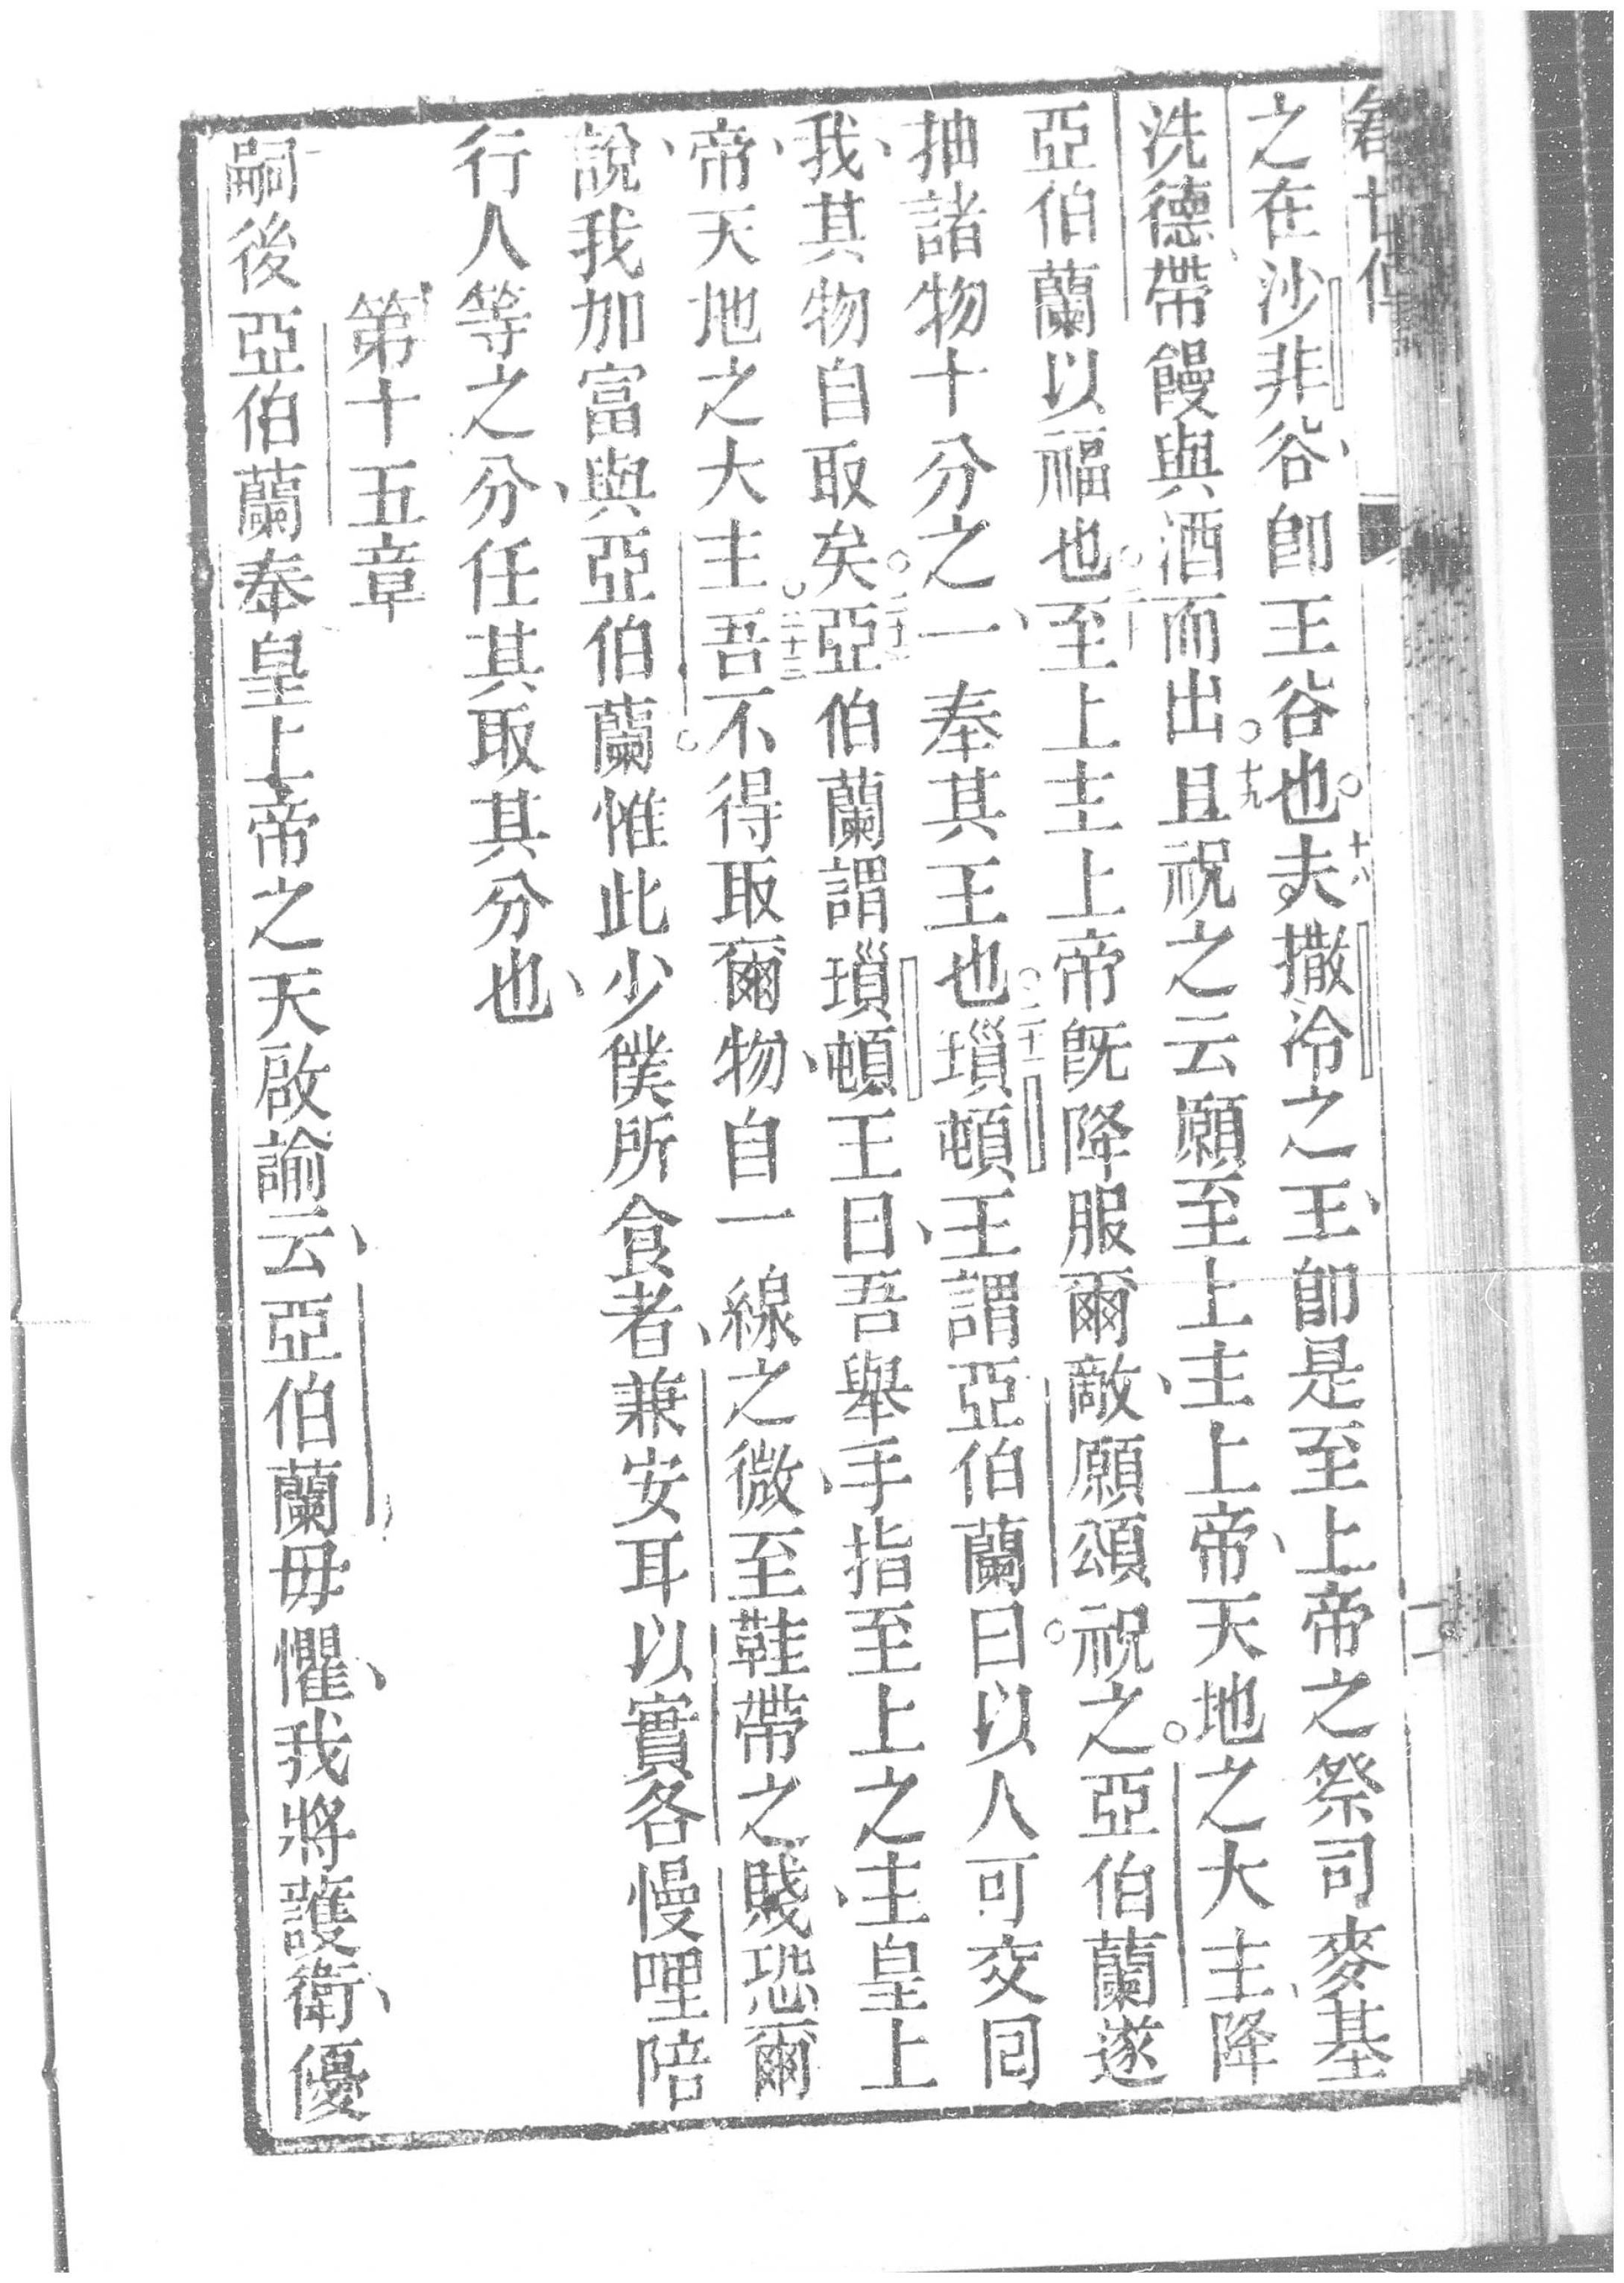 之在沙非谷、卽王谷也。十八夫撒冷之王、卽是至上帝之祭司麥基
洗德、帶饅與酒而出。十九且祝之云願至上主上帝、天地之大主、降
亞伯蘭以福也。至上主上帝旣降服爾敵、願頌祝之。亞伯蘭遂
抽諸物十分之一、奉其王也。二十一瑣頓王、謂亞伯蘭曰。以人可交囘
我、其物自取矣。亞伯蘭謂瑣頓王曰吾舉手、指至上之主、皇上
帝、天地之大主。二十三吾不得取爾物、自一線之微至鞋帶之賤恐、爾
說、我加富與亞伯蘭。惟此少僕所食者、兼安耳以實各慢哩陪
行人等之分、任其取其分也、
第十五章
嗣後亞伯蘭奉皇上帝之天啟諭云、亞伯蘭毋懼、我將護衛、優